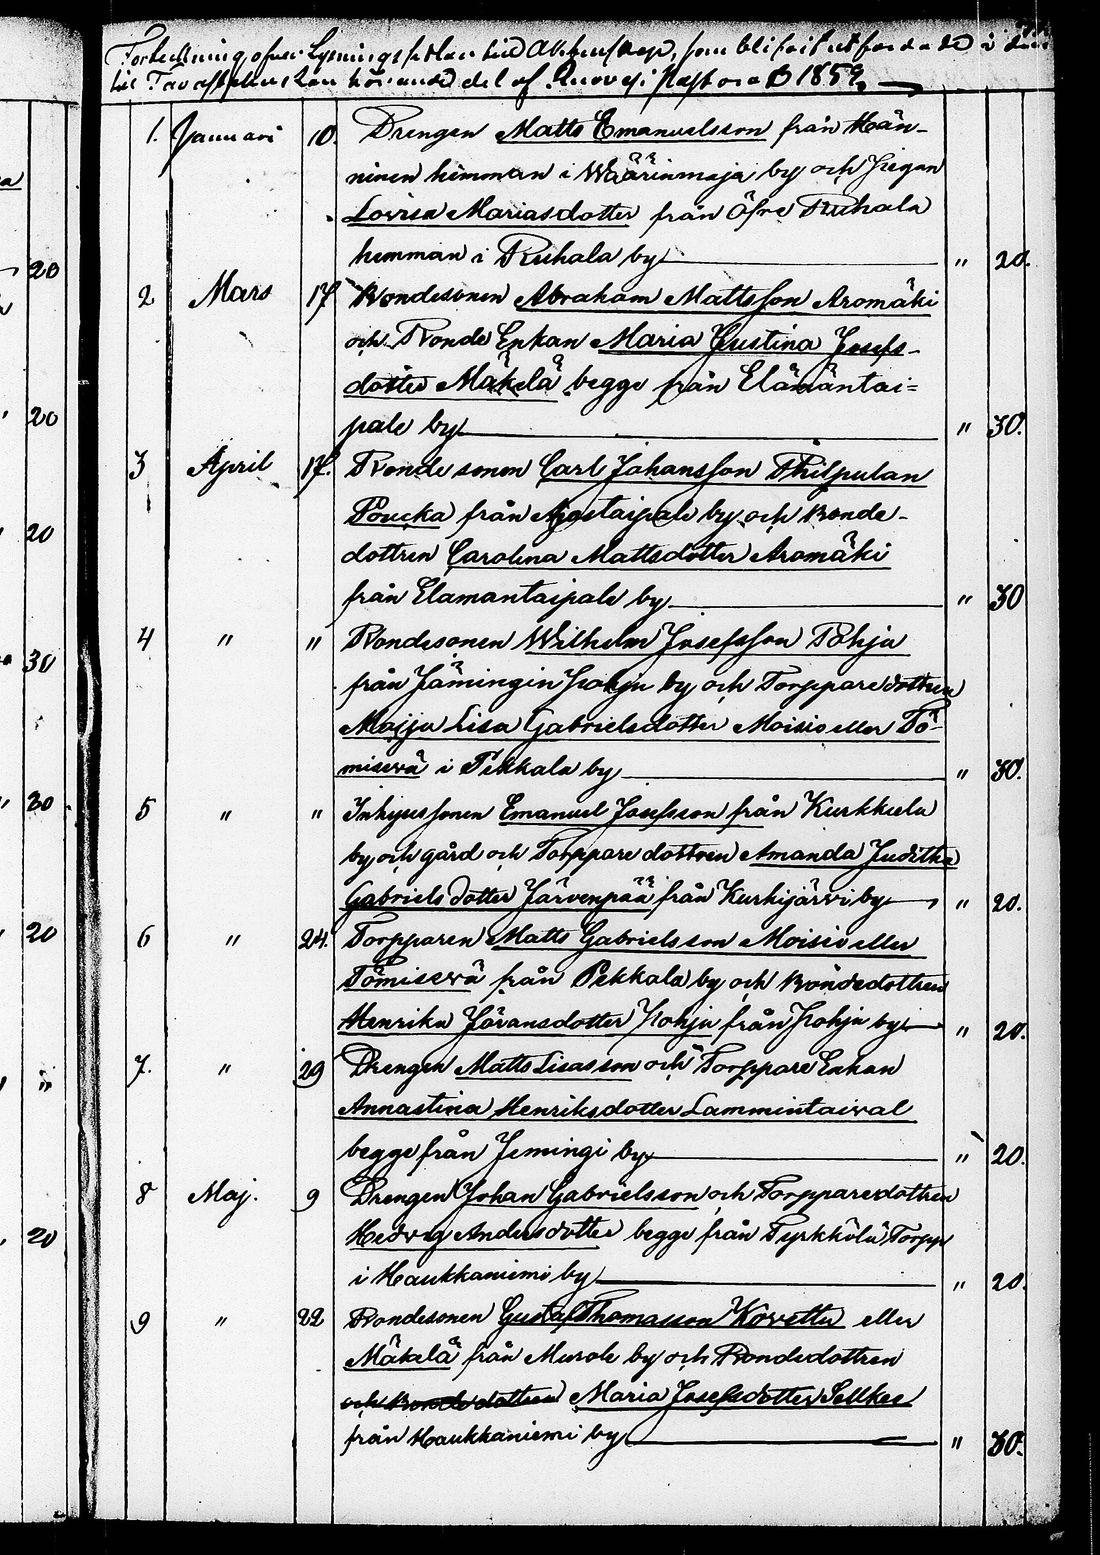 Förteckning öfver Lysningssedlar till Äktenskap, som blifvit utfärdade i den
till Tavastehus Län hörande del af Ruovesi Pastorat 1859.
1. Januari 10. Drengen Matts Emanuelsson från Hän-
ninen hemman i Wäärinmaja by och Pigan
Lovisa Mariasdotter från Öfre Ruhala
hemman i Ruhala by " 20.
2 Mars 17 Bondesonen Abraham Mattsson Aromäki
och Bonde Enkan Maria Justina Josefs-
dotter Mäkelä begge från Elämäntai=
pale by " 30.
3 April 17. Bondesonen Carl Johansson Philpulan
Poucka från Ajostaipale by och Bonde-
dottren Carolina Mattsdotter Aromäki
från Elamantaipale by " 30
4 " " Bondesonen Wilhelm Josefsson Pohja
från Jämingin Pohja by och Torppare dottren
Majja Lisa Gabrielsdotter Moisio eller Tö-
misevä i Pekkala by " 30.
5 " " Inhysessonen Emanuel Josefsson från Kurkkula
by och gård och Torppare dottren Amanda Juditha
Gabriels dotter Järvenpää från Kurkijärvi by " 20.
6 " 24. Torpparen Matts Gabrielsson Moisio eller
Tömisevä från Pekkala by och Bondedottren
Henrika Göransdotter Pohja från Pohja by " 20.
7. " 29 Drengen Matts Lisasson och Torppare Enkan
Annastina Henriksdotter Lammintaival
begge från Jemingi by " 20.
8 Maj. 9 Drengen Johan Gabrielsson och Torpparedottren
Hedvig Andersdotter begge från Tyrkkölä Torpp
i Haukkaniemi by " 20.
9 " 22 Bondesonen Gustaf Thomasson Kovetta eller
Mäkelä från Murole by och Bondedottren
och Bondedottren Maria Josefsdotter Sellkee
från Haukkaniemi by " 30.